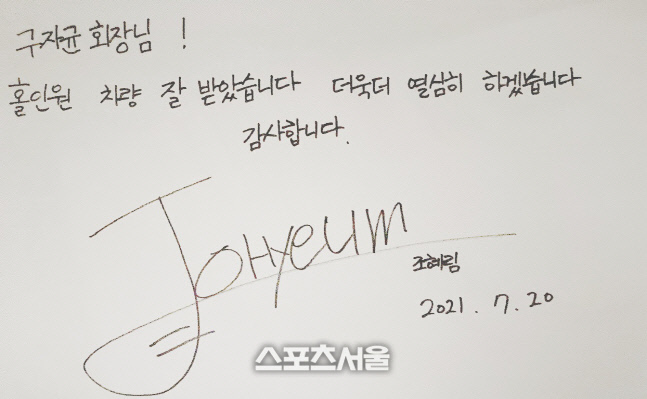 구자균 회장님 !
홀인원 차량 잘 받았습니다 더욱더 열심히 하겠습니다
감사합니다.
JoHyeum
조혜림
2021. 7. 20
스포츠서울